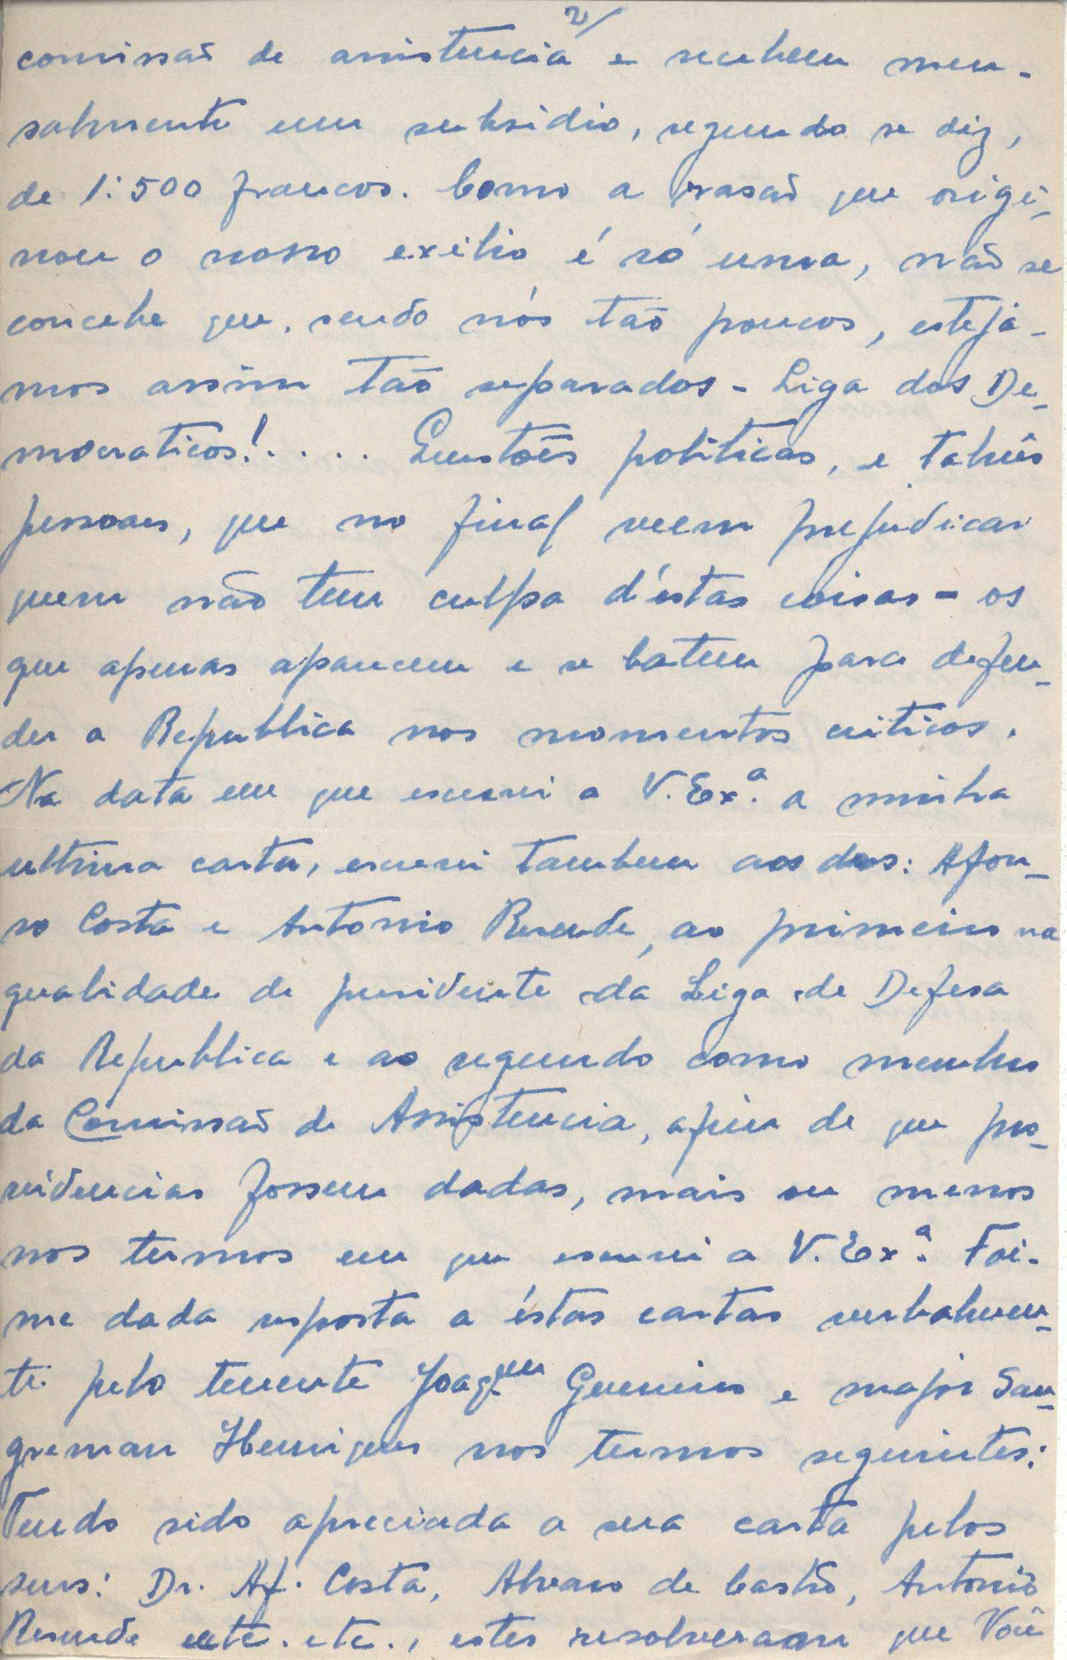 2/
comissaõ de assistencia e recebem men-
salmente um subsidio, segundo se diz,
de 1:500 francos. Como a rasaõ que origi-
nou o nosso exilio é só uma, não se
concebe que, sendo nós taõ poucos, esteja-
mos assim taõ separados - Liga dos De-
mocraticos!..... Questoēs politicas, e talvês
pessoaes, que no final veem prejudicar
quem não tem culpa d'éstas coisas - os
que apenas aparecem e se batem para defen-
der a Republica nos momentos criticos.
Na data em que escrevi a V. Ex.ª a minha
ultima carta, escrevi tambem aos drs: Afon-
so Costa e Antonio Resende, ao primeiro na
qualidade de presidente da Liga de Defesa
da Republica e ao segundo como membro
da Comissaõ de Assistencia, afim de que pro-
videncias fossem dadas, mais ou menos
nos termos em que escrevi a V. Ex.ª. Foi-
me dada resposta a éstas cartas verbalmen-
te pelo tenente Joaq.uim Guerreiro e major San-
greman Henriques nos termos seguintes:
Tendo sido apreciada a sua carta pelos
snrs: Dr. Af. Costa, Alvaro de Castro, Antonio
Resende etc. etc., estes resolveram que Você